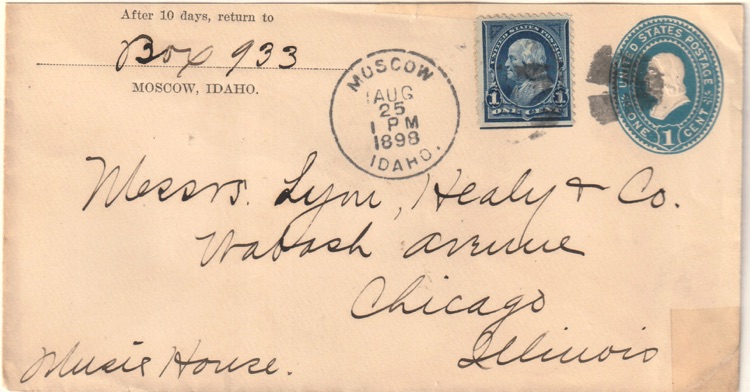 After 10 days, return to
Box 933
MOSCOW, IDAHO.
MOSCOW
AUG
25
1 PM
1898
IDAHO.
UNITED STATES POSTAGE
1 1
ONE CENT
UNITED STATES POSTAGE
ONE 1 CENT
Messrs. Lyon, Healy & Co.
Wabash Avenue
Chicago
Illinois
Music House.